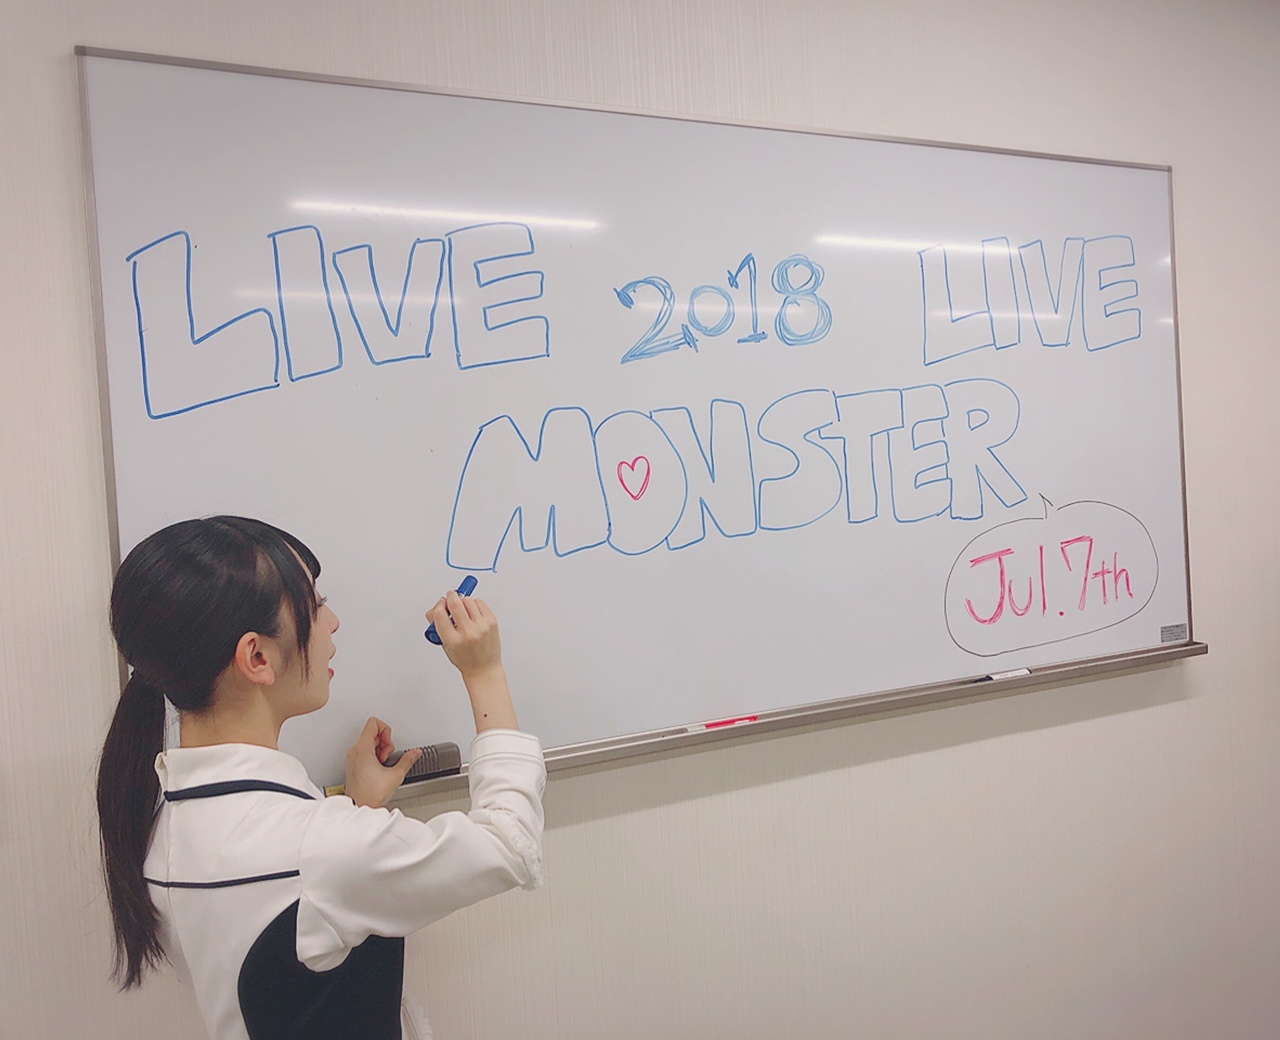 LIVE 2018 LIVE
MONSTER
Jul.7th